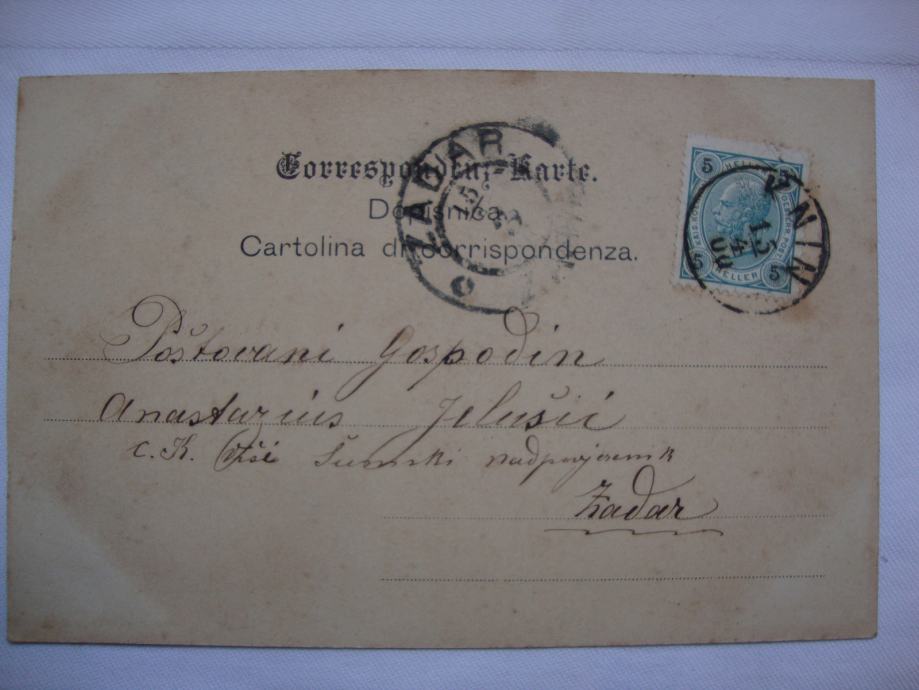 Correspondenz-Karte.
Dopisnica.
Cartolina di corrispondenza.
ZADAR
5 HELLER 5
5 HELLER 5
KNIN
15
4
00
Poštovani Gospodin
Anastazius Jelušić
c. K. Viši Šumski nadpovjerenik
Zadar